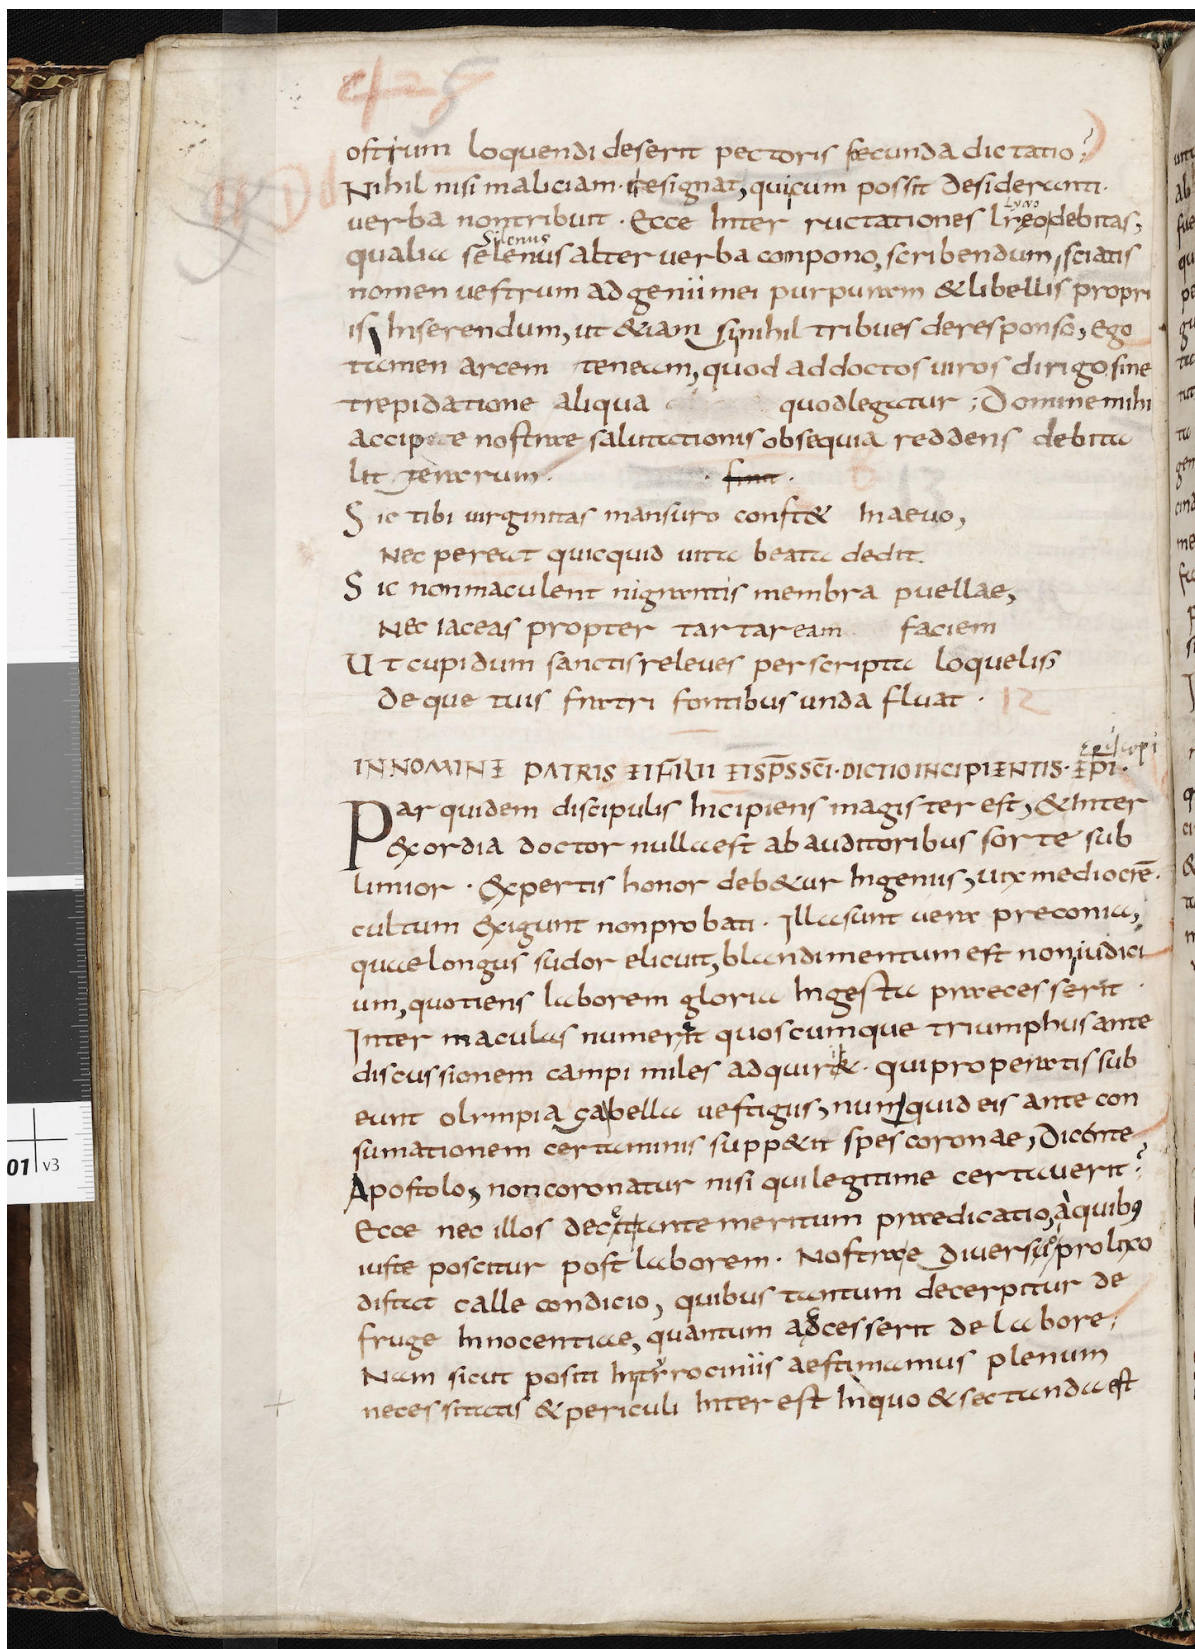 oftrum loquendi deserit pectoris fecunda dictatio;
Nihil nisi maliciam designat, quicum possit desideranti.
verba non tribuit. Ecce Inter ructationes lyeo debitas,
Lyeo
qualia selenus alter verba compono, scribendum, sciatis
Silenus
nomen vestrum ad genii mei purpuram & libellis propri
is Inserendum, ut &iam si nihil tribues de responso, ego
tamen arcem teneam, quod ad doctos viros dirigo sine
trepidatione aliqua quod legatur; Domine mihi
accipite nostrae salutationis obsequia reddens debita
litterarum. finit.
Sic tibi virginitas mansuro const& In aevo,
Nec pereat quicquid vita beata dedit.
Sic non maculent nigrantis membra puellae,
Nec iaceas propter tartaream faciem
Ut cupidum sanctis releves per scripta loquelis
De que tuis fratri fontibus unda fluat. 12
Episcopi
IN NOMINE PATRIS ET FILII ET SPS SCI. DICTIO INCIPIENTIS. EPI.
Par quidem discipulis Incipiens magister est, & Inter
&xordia doctor nulla est ab auditoribus sorte sub
limior. &xpertis honor deb&ur Ingenus, vix mediocrē.
cultum &xigunt non probati. Illa sunt vera preconia,
quae longus sudor elicuit, blandimentum est non iudici
um, quotiens laborem gloria Ingesta praecesserit.
Inter maculas numerat quoscumque triumphus ante
discussionem campi miles adquir&. qui properatis sub
eunt olimpia gabella vestigiis, numquid eis ante con
sumationem certaminis supp&it spes coronae, Dicente
Apostolo, non coronatur nisi qui legitime certaverit?
Ecce nec illos decet ante meritum praedicatio, a quibus
iuste poscitur post laborem. Nostrae diverso prolixo
distat calle condicio, quibus tantum decerpitur de
fruge Innocentiae, quantum adcesserit de labore;
Nam sicut positi In tirrociniis aestimamus plenum
necessitatis & periculi Inter est In quo & sectanda est
01 v3